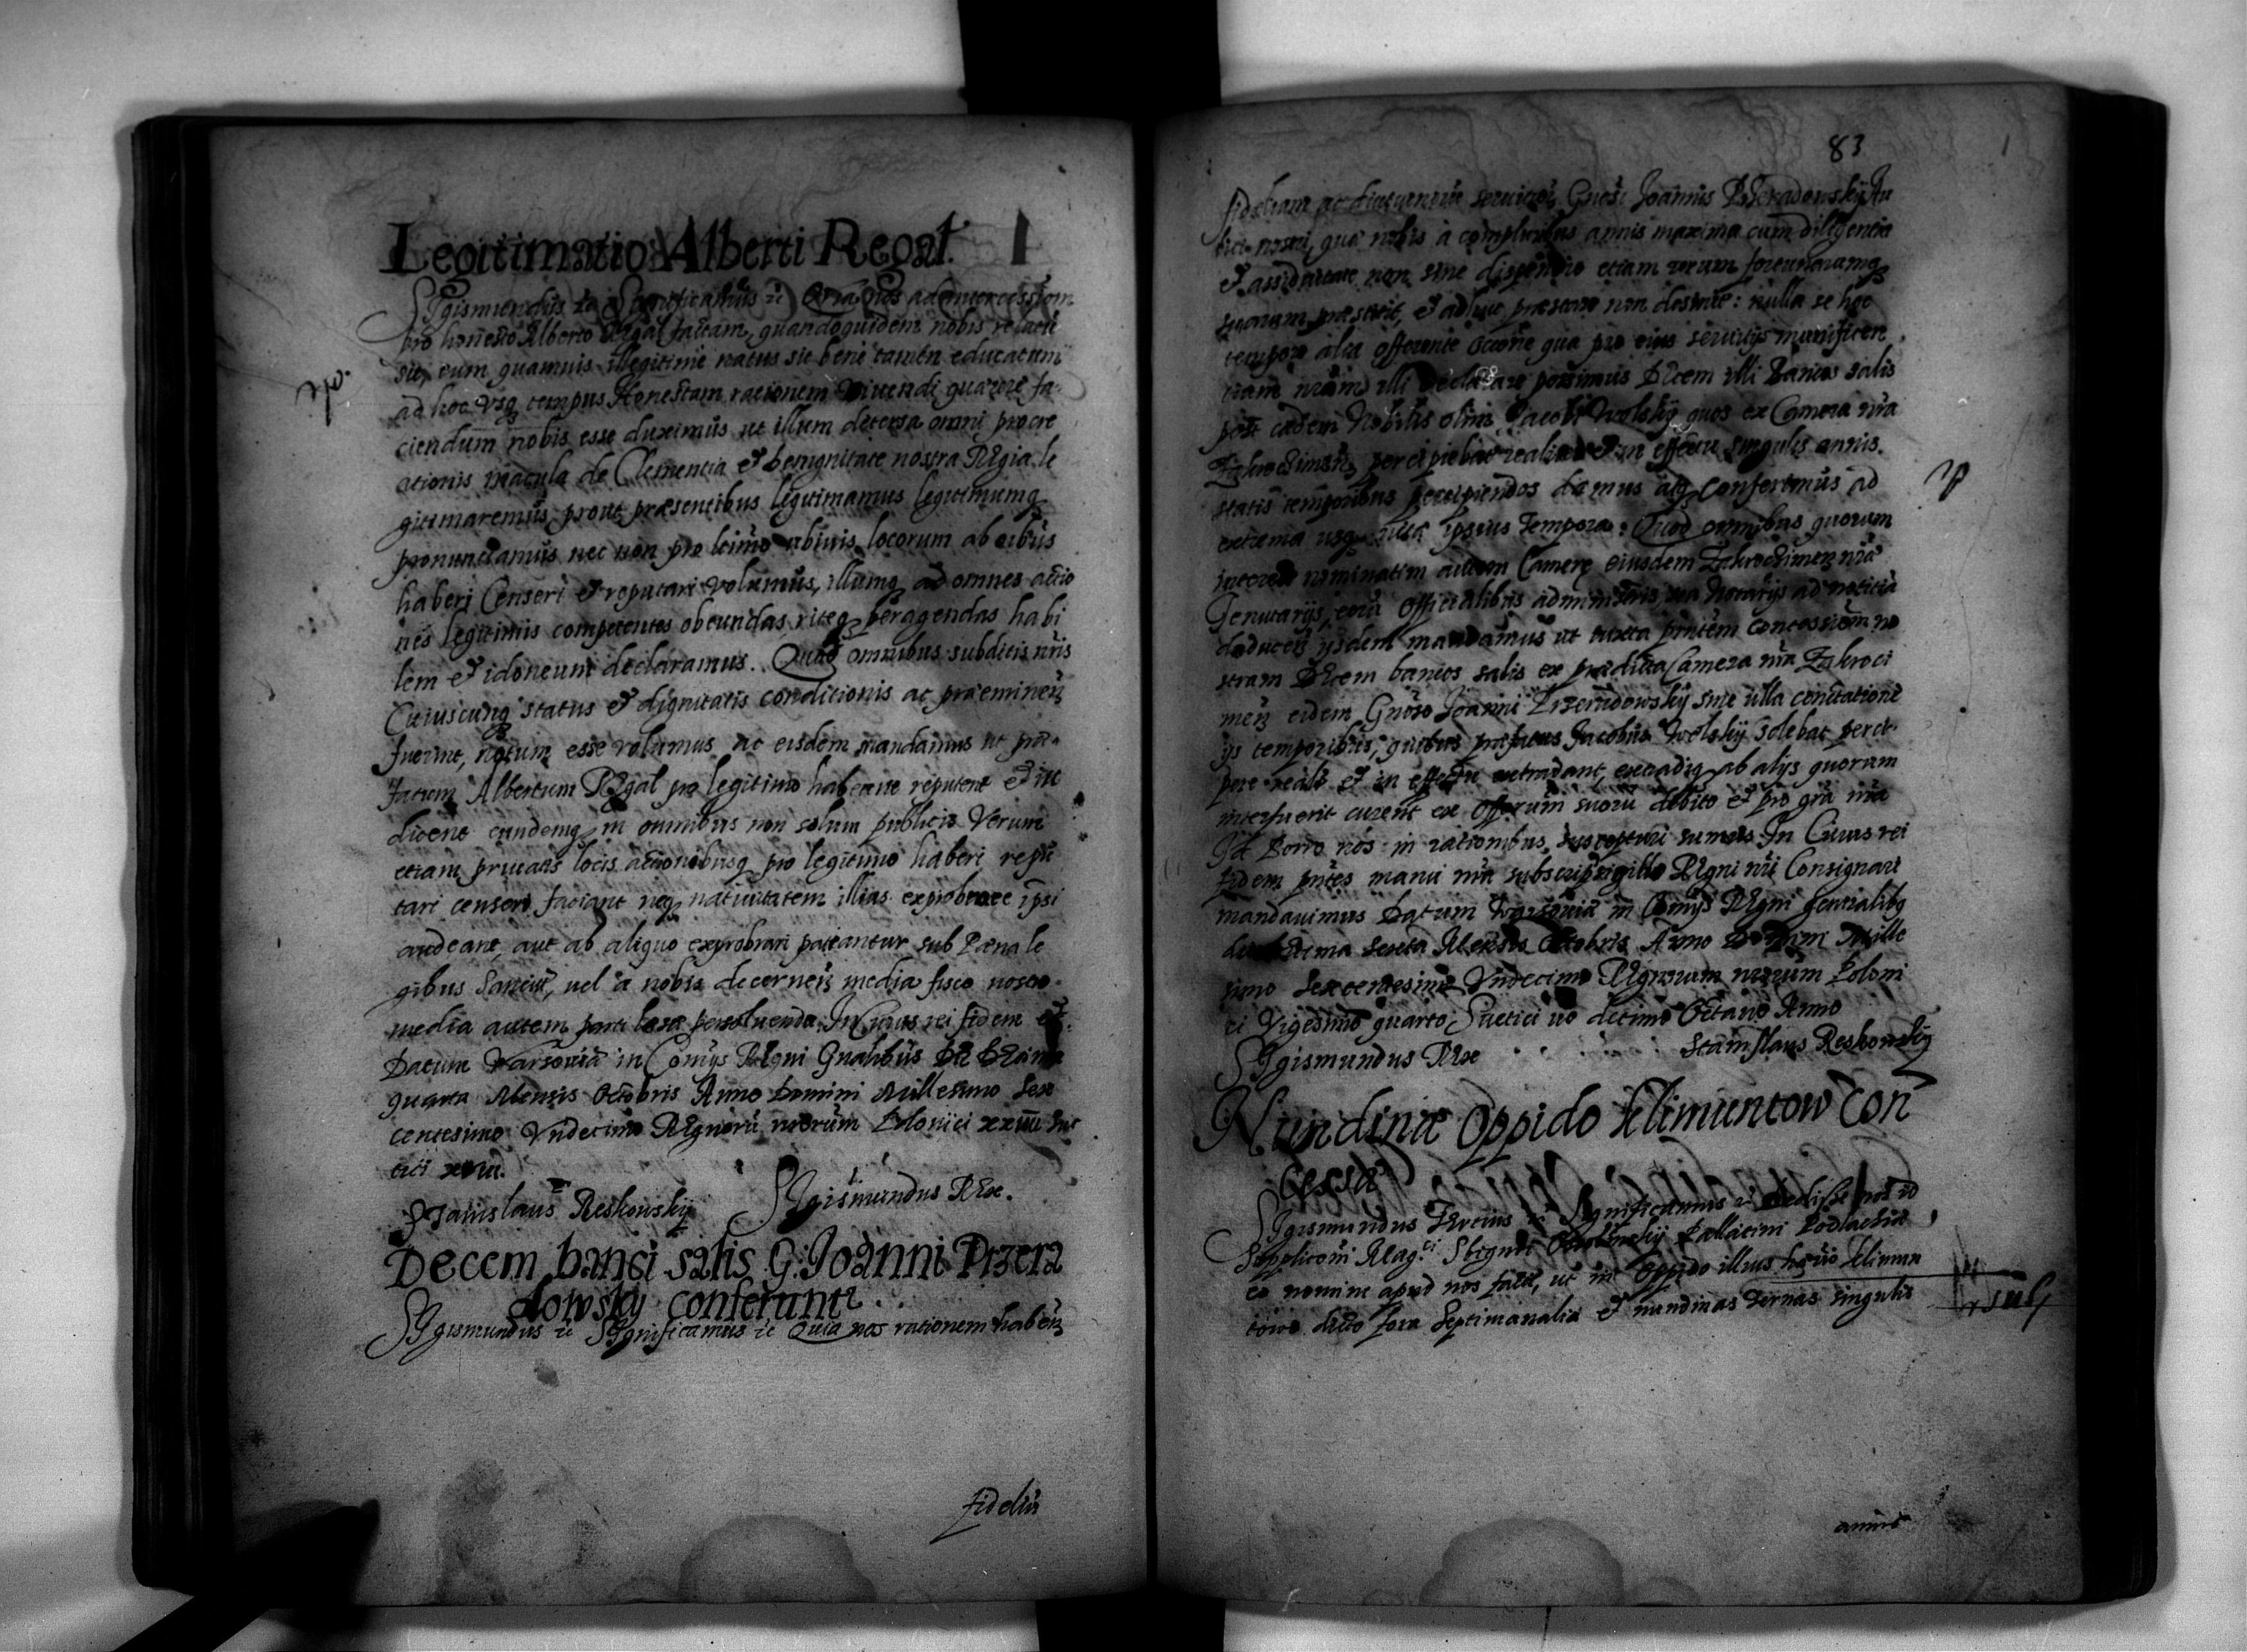 Legitimatio Alberti Regal.
Sigismundus etc Significamus etc Quia nos ad intercessiom
pro honesto Alberto Regal factam, quandoquidem nobis relatū
sit, eum quamuis illegitimie natus sit bene tamen educatum
ad hoc usq tempus Honestam rationem viuendi quaerere fa-
ciendum nobis esse duximus ut illum detersa omni procre
ationis macula de Clementia et benignitate nostra Regia le
gitimaremus, prout praesentibus legitimamus legitimumq
pronunciamus nec non pro legitimo ubiuis locorum ab oībus
haberi Censeri et reputari volumus, illumq ad omnes actio
nes legitimis competentes obeundas, riteq peragendas habi
lem et idoneum declaramus. Quod omnibus subditis nrīs
Cuiuscunq status et dignitatis conditionis ac praeeminen
fuerint, notum esse volumus ac eisdem mandamus ut prae-
fatum Albertum Regal pro legitimo habeant reputent et iu
dicent eundemq in omnibus non solum publicis Verum
etiam priuatis locis actionibusq pro legitimo haberi repu
tari censeri faciant neq natiuitatem illius exprobrare ipsi
audeant, aut ab aliquo exprobrari patiantur sub Paena le
gibus Sancita, uel a nobis decernen media fisco nostro
media autem parti laesae persoluenda. In Cuius rei fidem etc.
Datum Varsouiae in Comijs Regni Gnalibus Die Decima
quarta Mensis Octobris Anno Domini Millesimo Sex
centesimo Undecimo Regnorū nrorum Polonici xxiiii Sue
tici xviii.
Stanislaus Reskowsky Sigismundus Rex.
Decem banci salis G: Joanni Przera
dowsky conferuntr.
Sigismundus etc Significamus etc Quia nos rationem haben
Fidelin
83
fidelium ac diuturnorū seruitiorū Gnosi Joannis Przeradowsky Au
lici nostri, quae nobis a compluribus annis maxima cum diligentia
et assiduitate non sine dispendio etiam rerum fortunarumq
suarum praestitit, et adhuc praestare non desinit: nulla se hoc
tempore alia offerente occōne qua pro eius seruitijs munificen
tiam nram illi declarare possimus Decem illi Bancos salis
post cadem Nobilis olim Jacobi Wolsky quos ex Camera nra
Zakrocimen percipiebat realiter et in effectu singulis annis.
statis temporibus percipiendos damus atq conferimus ad
extrema usq uitae ipsius Tempora. Quod omnibus quorum
interest nominatim autem Camerę eiusdem Zakrocimen nrae
Tenutarijs, eorū Officialibus administris ac Notarijs ad notitia
deducen ijsdem mandamus ut iuxta pntem concessiom no
stram Decem bancos salis ex praedicta Camera nra Zakroci
men eidem Gnoso Joanni Przeradowsky sine ulla cunctatione
ijs temporibus, quibus praefatus Jacobus Wolsky solebat perci-
pere reali et in effectu extradant, extradiq ab alijs quorum
interfuerit curent ex Officiorum suorū debito et pro gra nra
Id Porro nos in rationibus suscepturi sumus In Cuius rei
fidem pntes manu nra subscrip sigillo Regni nri Consignari
mandauimus Datum Varsouiae in Comijs Regni generalibq
die decima Sexta Mensis Octobris Anno Domini Mille
simo Sexcentesimo Undecimo Regnorum nrorum Poloni
ci Vigesimo quarto Suetici uo decimo Octauo Anno
Sigismundus Rex Stanislaus Reskowsky
Nundinae Oppido Klimuntow con
cessae
Sigismundus Tertius etc Significamus etc Dedisse nos id
Supplicōni Mag.ci Sbignei Ossolinsky Pallatini Podlachiae
eo nomine apud nos factae, ut in Oppido illius haerio Klimun
towo dicto fora Septimanalia et nundinas Ternas singulis
annis